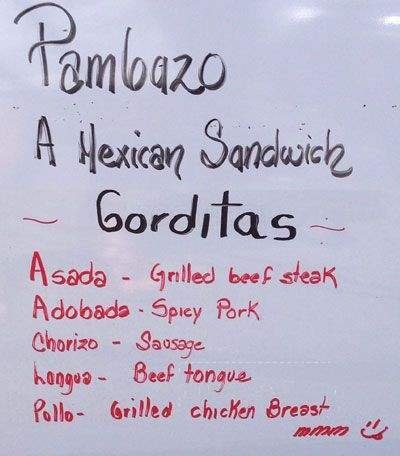 Pambazo
A Mexican Sandwich
~ Gorditas ~
Asada - Grilled beef steak
Adobada - Spicy Pork
Chorizo - Sausage
Lengua - Beef tongue
Pollo - Grilled chicken Breast
mmm